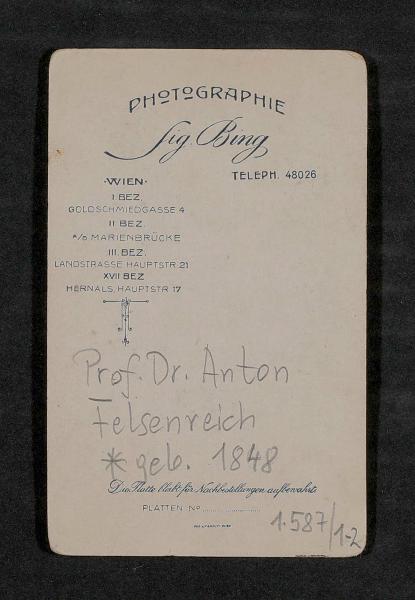 PHOTOGRAPHIE
Sig. Bing
TELEPH. 48026
·WIEN·
I BEZ.
GOLDSCHMIEDGASSE 4
II BEZ.
A/D MARIENBRÜCKE
III. BEZ.
LANDSTRASSE HAUPTSTR 21
XVII BEZ
HERNALS, HAUPTSTR 17
Prof. Dr. Anton
Felsenreich
* geb. 1848
Die Platte bleibt für Nachbestellungen aufbewahrt.
PLATTEN No
1.587/1-2